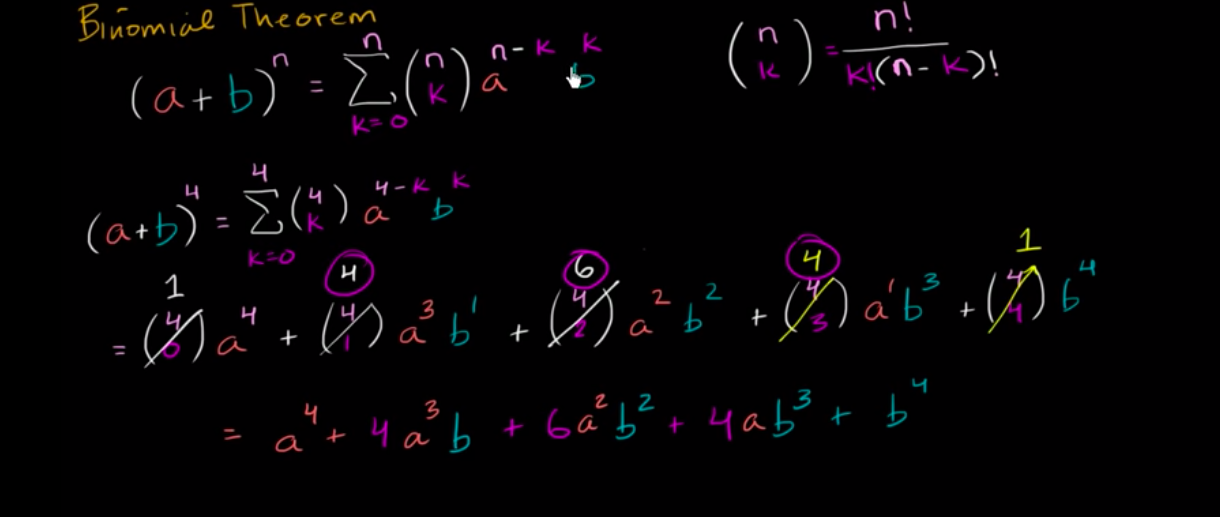 Binomial Theorem
(a+b)^n = \sum_{k=0}^{n} \binom{n}{k} a^{n-k} b^k
\binom{n}{k} = \frac{n!}{k!(n-k)!}
(a+b)^4 = \sum_{k=0}^{4} \binom{4}{k} a^{4-k} b^k
1 4 6 4 1
= \binom{4}{0} a^4 + \binom{4}{1} a^3 b^1 + \binom{4}{2} a^2 b^2 + \binom{4}{3} a^1 b^3 + \binom{4}{4} b^4
= a^4 + 4a^3b + 6a^2b^2 + 4ab^3 + b^4